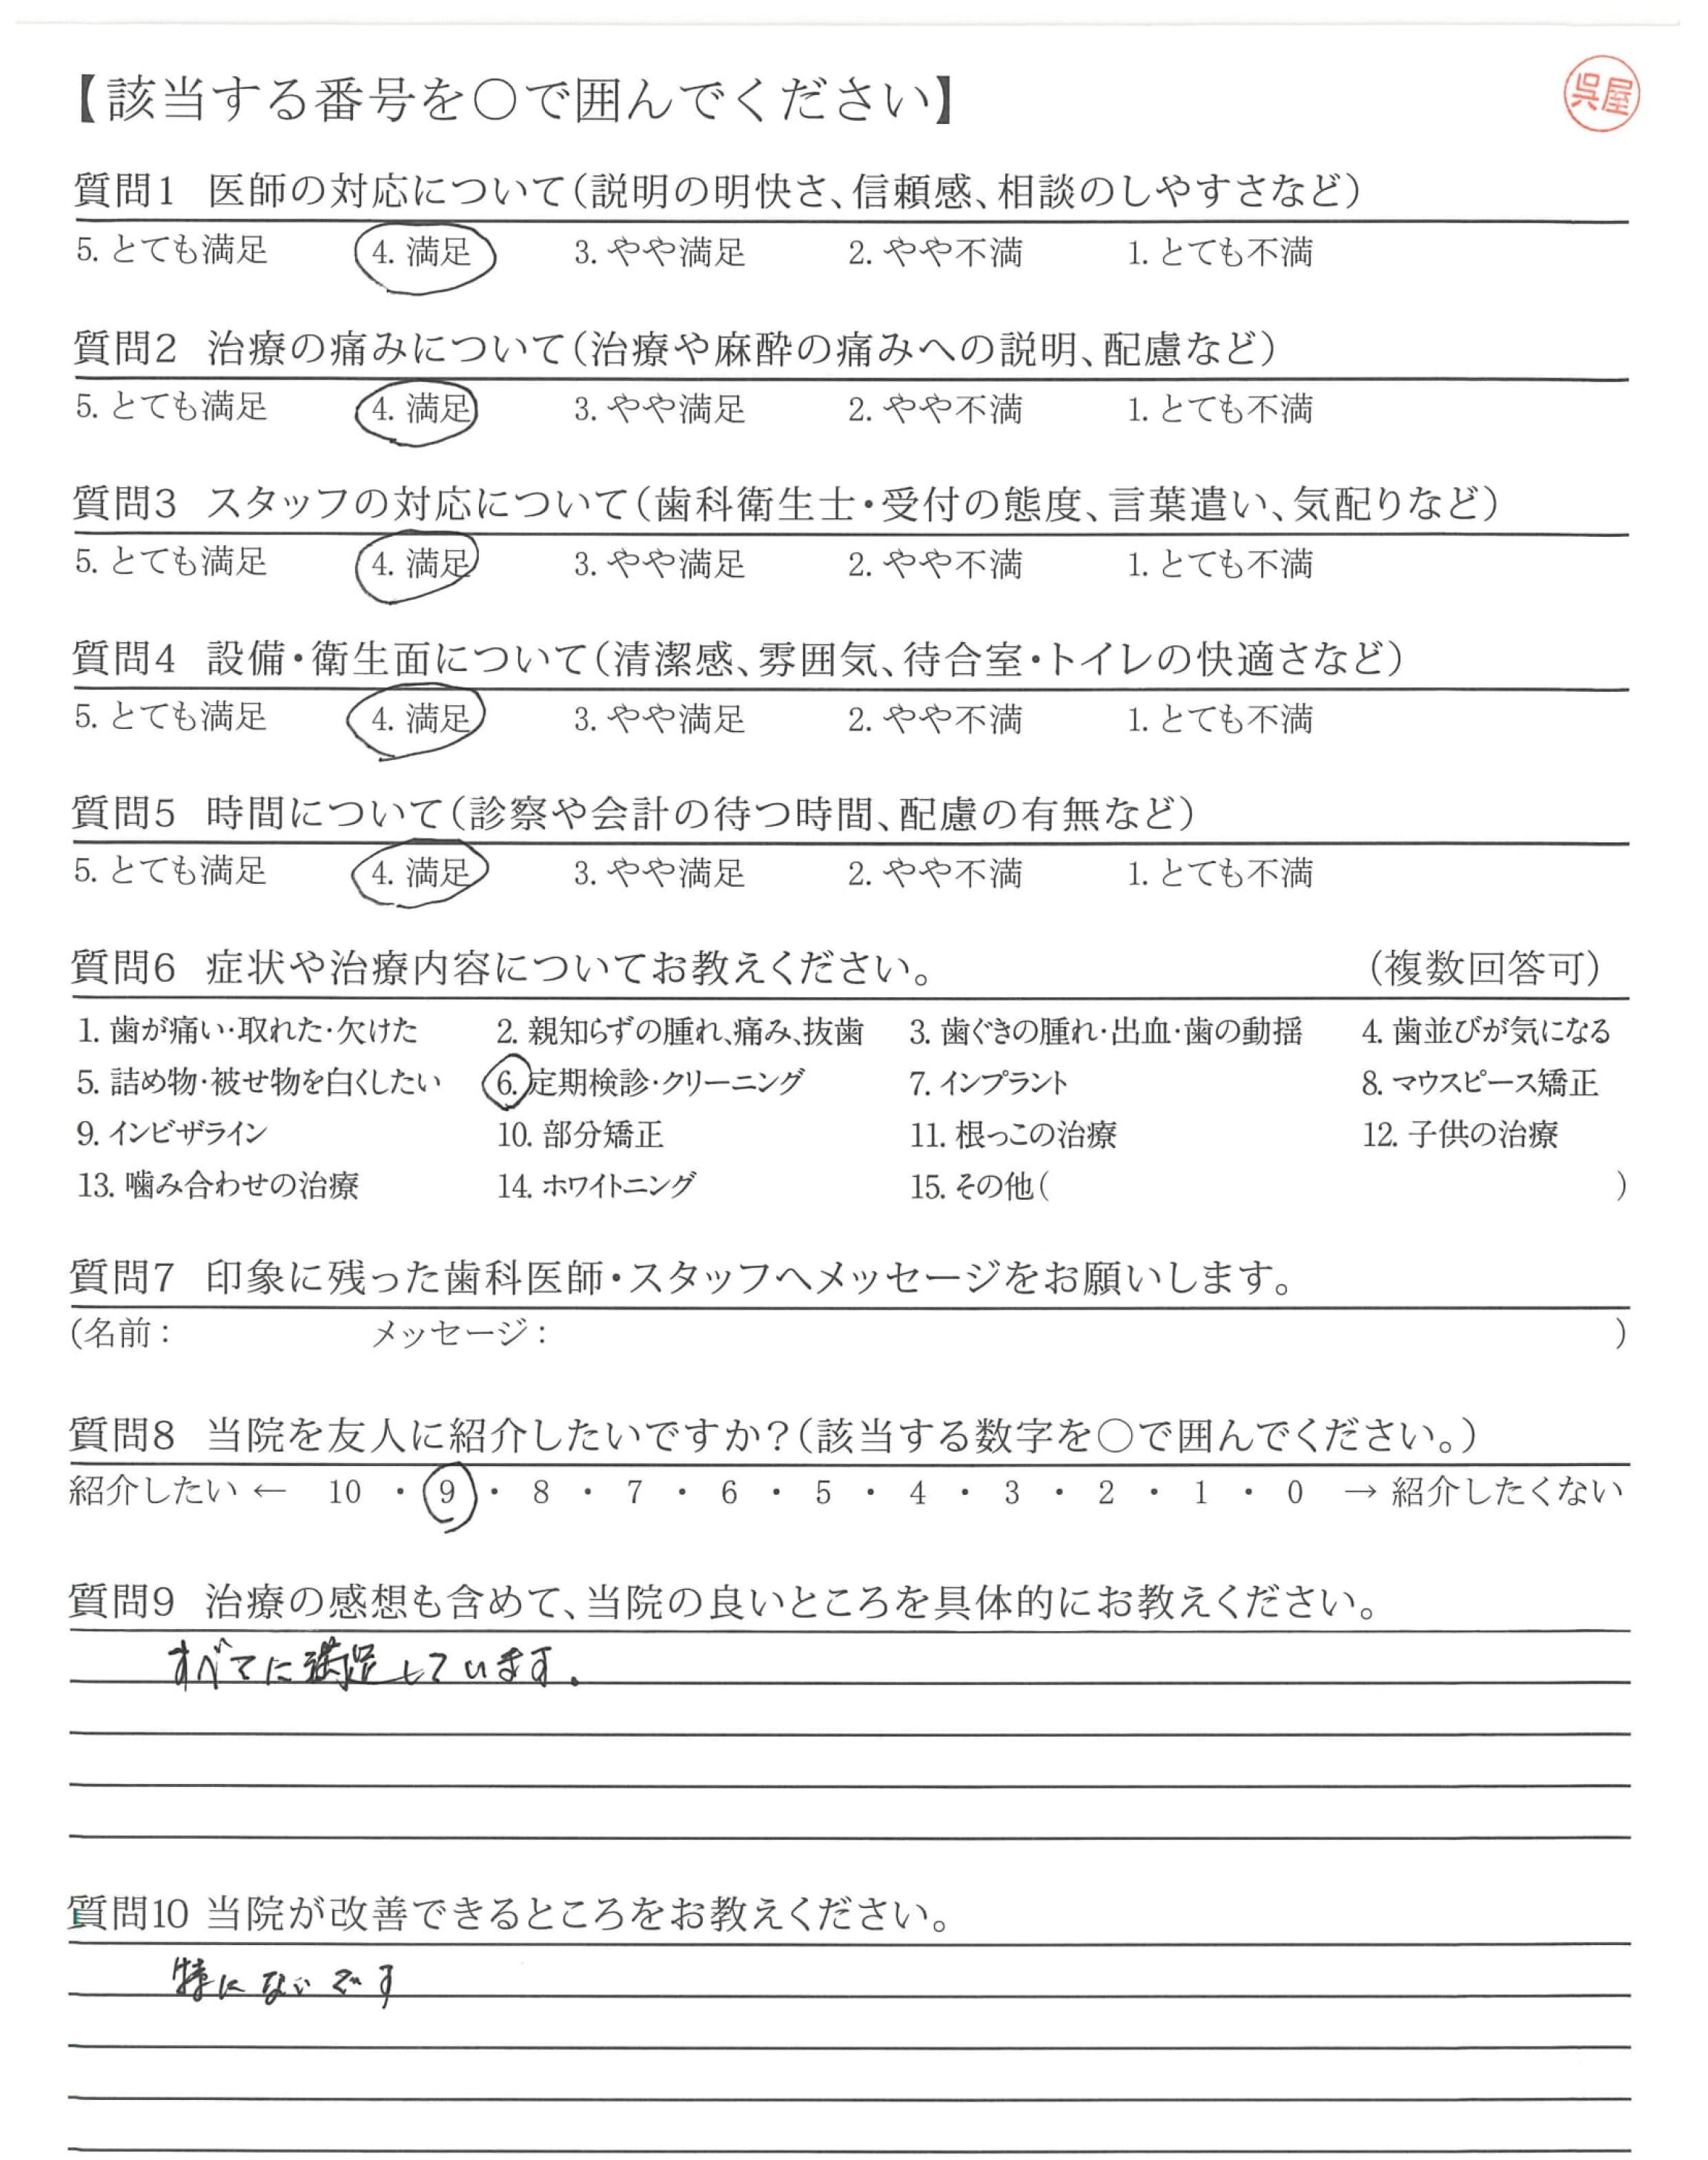 【該当する番号を○で囲んでください】
呉屋
質問1 医師の対応について(説明の明快さ、信頼感、相談のしやすさなど)
5. とても満足 4. 満足 3. やや満足 2. やや不満 1. とても不満
質問2 治療の痛みについて(治療や麻酔の痛みへの説明、配慮など)
5. とても満足 4. 満足 3. やや満足 2. やや不満 1. とても不満
質問3 スタッフの対応について(歯科衛生士・受付の態度、言葉遣い、気配りなど)
5. とても満足 4. 満足 3. やや満足 2. やや不満 1. とても不満
質問4 設備・衛生面について(清潔感、雰囲気、待合室・トイレの快適さなど)
5. とても満足 4. 満足 3. やや満足 2. やや不満 1. とても不満
質問5 時間について(診察や会計の待つ時間、配慮の有無など)
5. とても満足 4. 満足 3. やや満足 2. やや不満 1. とても不満
質問6 症状や治療内容についてお教えください。 (複数回答可)
1. 歯が痛い・取れた・欠けた 2. 親知らずの腫れ、痛み、抜歯 3. 歯ぐきの腫れ・出血・歯の動揺 4. 歯並びが気になる
5. 詰め物・被せ物を白くしたい 6. 定期検診・クリーニング 7. インプラント 8. マウスピース矯正
9. インビザライン 10. 部分矯正 11. 根っこの治療 12. 子供の治療
13. 噛み合わせの治療 14. ホワイトニング 15. その他( )
質問7 印象に残った歯科医師・スタッフへメッセージをお願いします。
(名前: メッセージ: )
質問8 当院を友人に紹介したいですか?(該当する数字を○で囲んでください。)
紹介したい ← 10 ・ 9 ・ 8 ・ 7 ・ 6 ・ 5 ・ 4 ・ 3 ・ 2 ・ 1 ・ 0 → 紹介したくない
質問9 治療の感想も含めて、当院の良いところを具体的にお教えください。
すべてに満足しています。
質問10 当院が改善できるところをお教えください。
特にないです